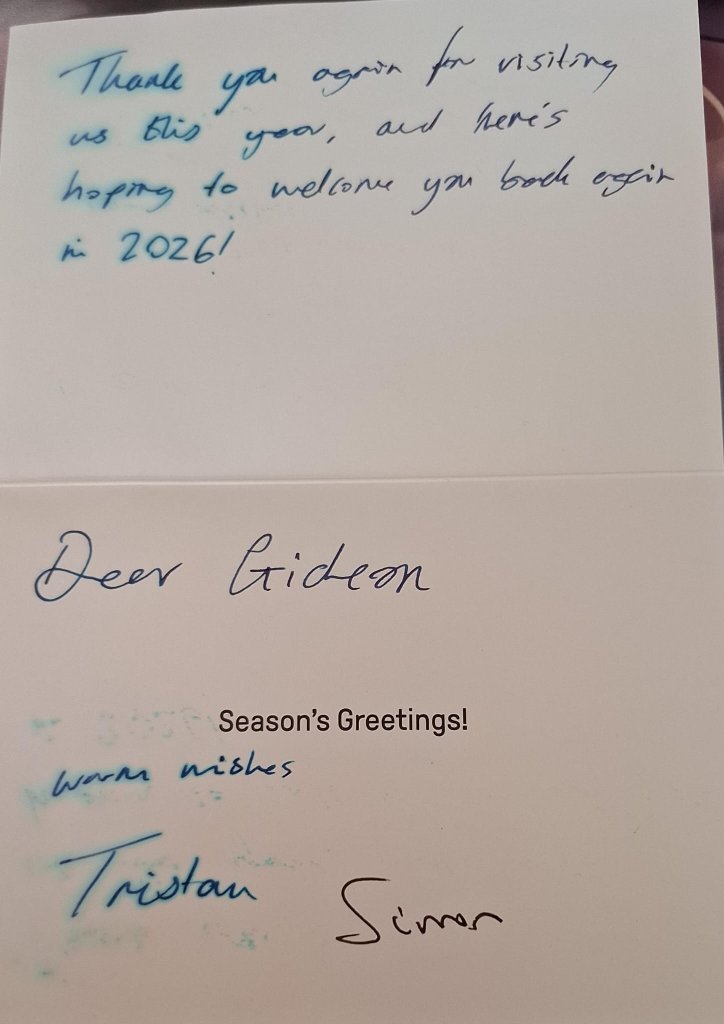 Thank you again for visiting
us this year, and here's
hoping to welcome you back again
in 2026!
Dear Gideon
Season's Greetings!
warm wishes
Tristan
Simon